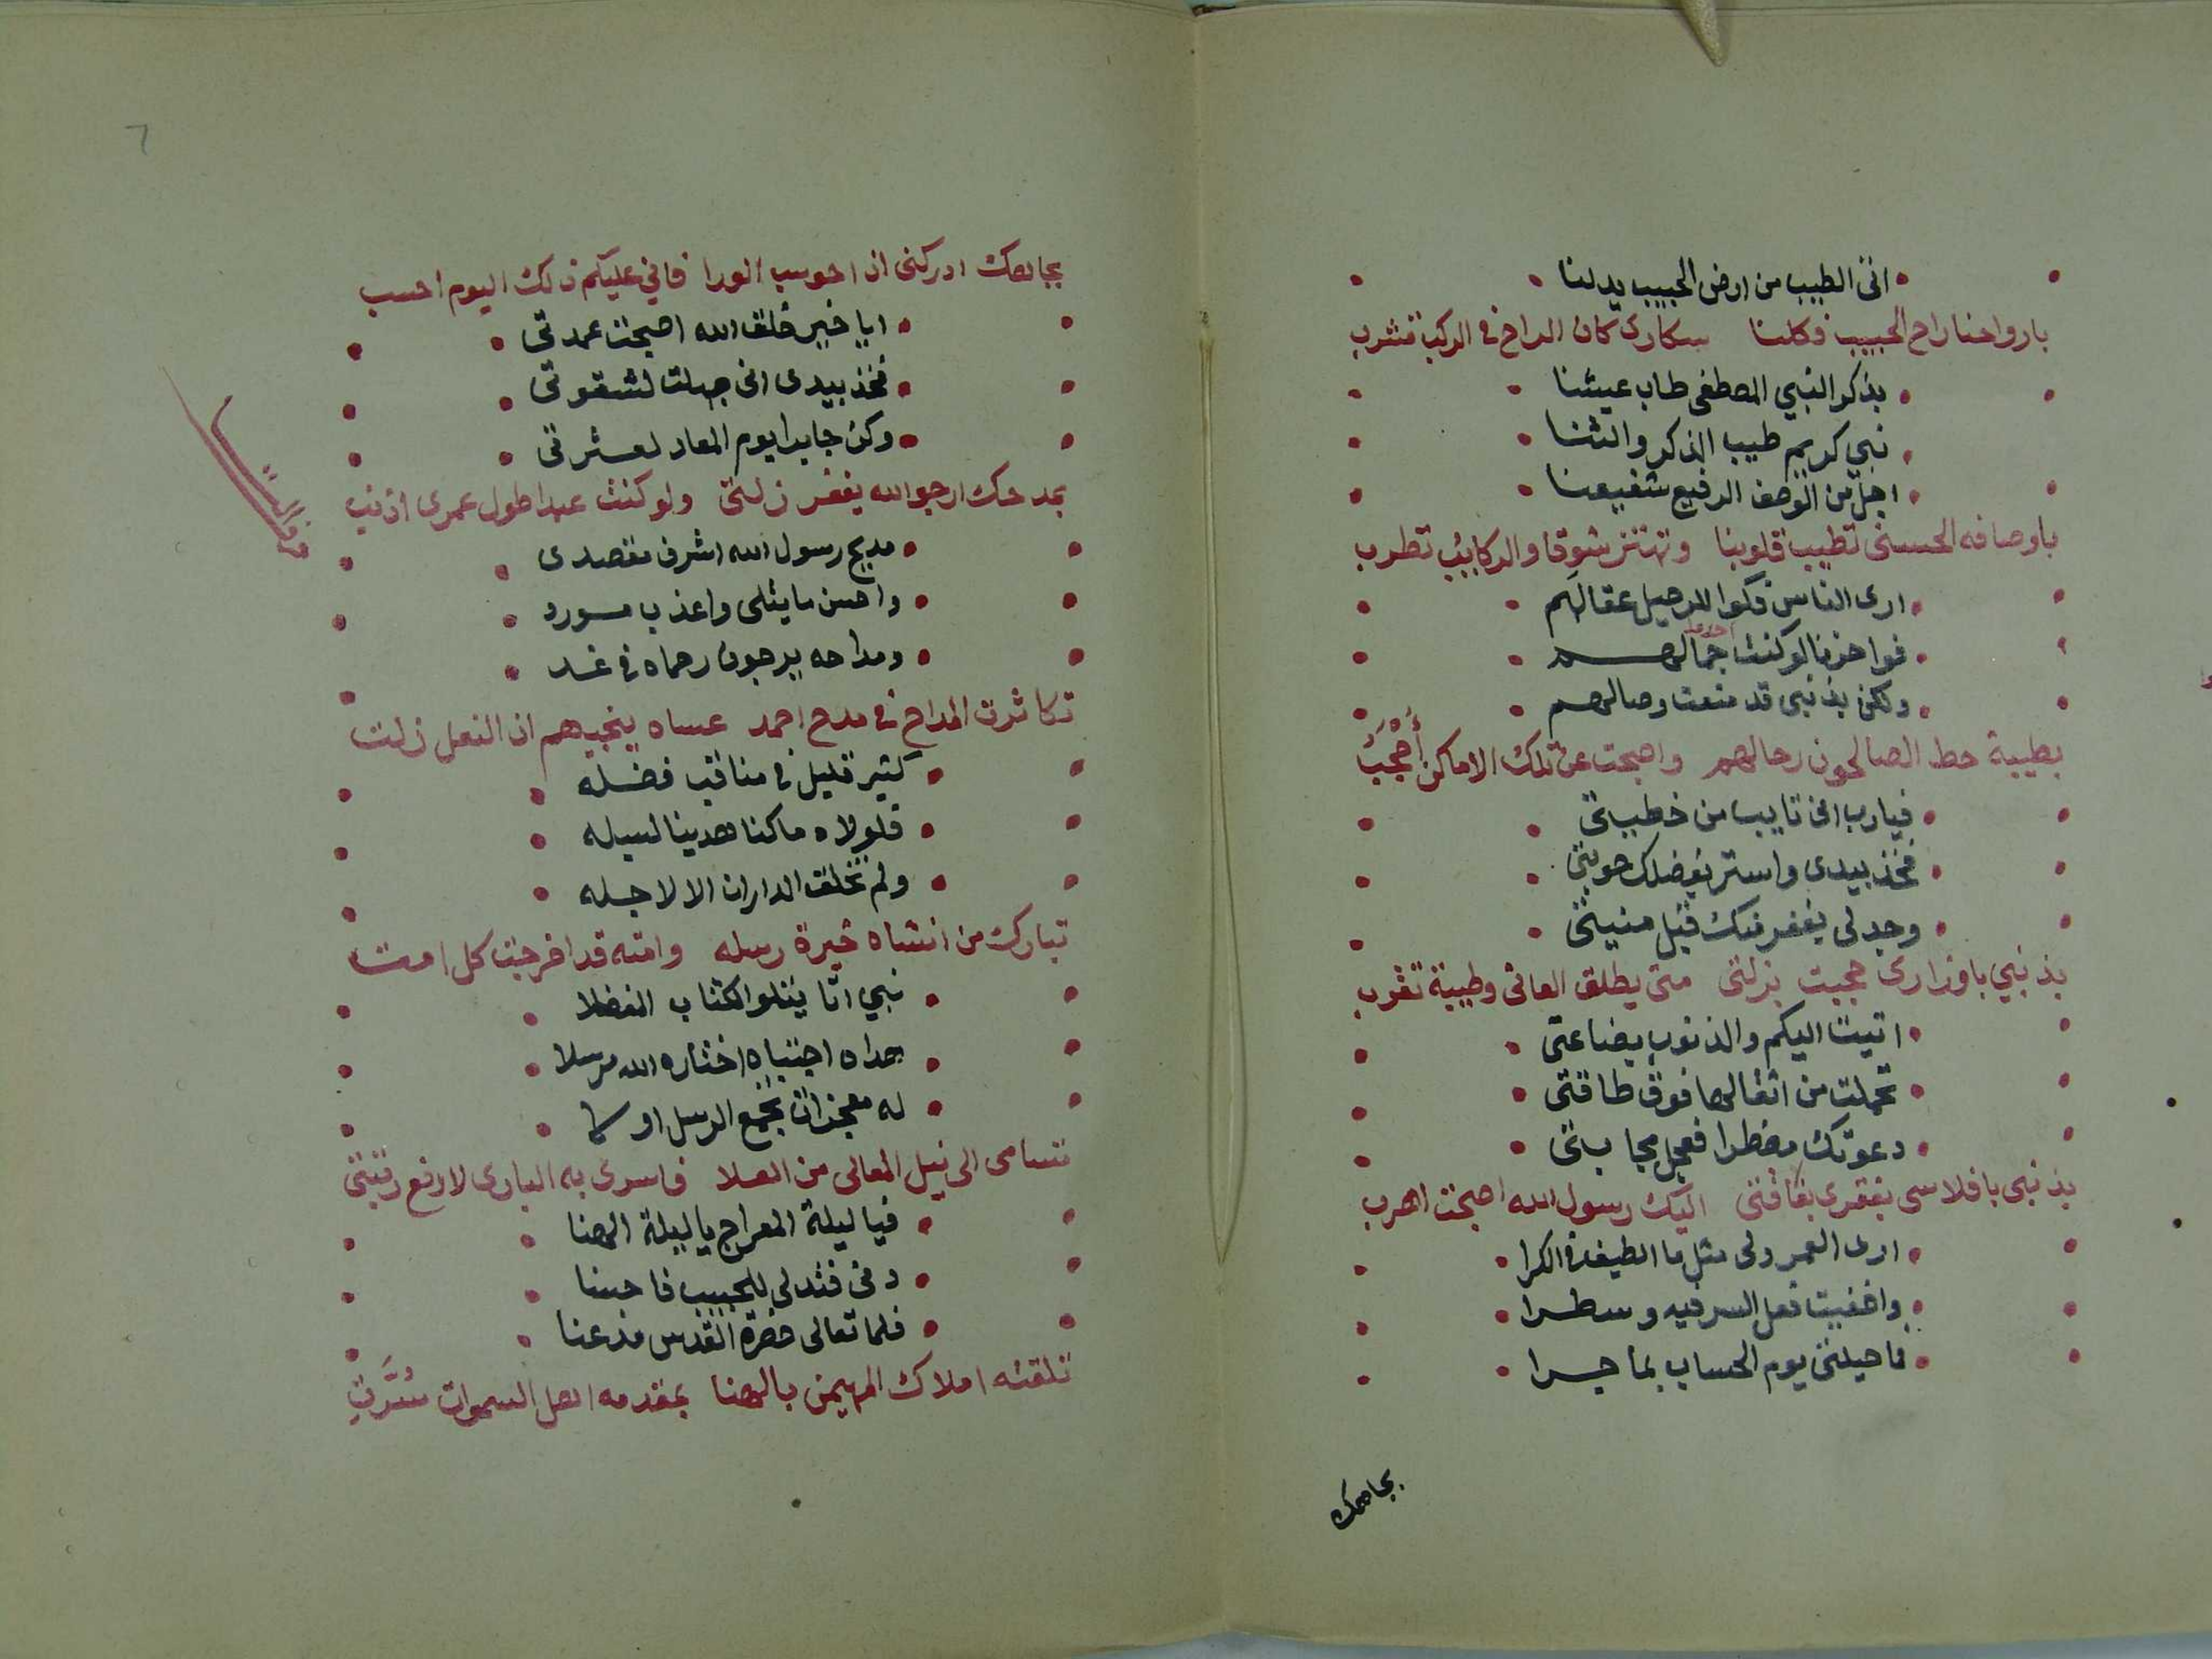 اتى الطيب من ارض الحبيب يدلنا
بارواحنا راح الحبيب وكلنا سكارى كان الراح فى الركب تشرب
بذكر النبي المصطفى طاب عيشنا
نبي كريم طيب الذكر والثنا
اجل من الوصف الرفيع شفيعنا
باوصافه الحسنى تطيب قلوبنا وتهتز شوقا والركايب تطرب
ارى الناس فكوا للرحيل عقالهم
فواحزنا لو كنت جمالهم
ولكن بذنبى قد منعت وصالهم
بطيبة حط الصالحون رحالهم واصبحت عن تلك الاماكن أُحْجَبُ
فيارب انى تايب من خطيتى
فخذ بيدى واستر بفضلك حوبتى
وجد لى بغفر منك قبل منيتى
بذنبي باوزارى حجبت بزلتى متى يطلق العانى وطيبة تقرب
اتيت اليكم والذنوب بضاعتى
تحملت من اثقالها فوق طاقتى
دعوتك مضطرا فعجل مجابتى
بذنبى بافلاسى بفقرى بفاقتى اليك رسول الله اصبحت اهرب
ارى العمر ولى مثل ما الطيف فى الكرا
واخفيت فعل السر فيه وسطرا
فما حيلتى يوم الحساب بما جرا
بجاهك
بجاهك ادركنى اذا حوسب الورا فاني عليكم ذلك اليوم احسب
ايا خير خلق الله اصبحت عمدتى
فخذ بيدى انى جهلت لشقوتى
وكن جابرا يوم المعاد لعثرتى
بمدحك ارجو الله يغفر زلتى ولو كنت عبدا طول عمرى اذنب
مديح رسول الله اشرف مقصدى
واحسن ما يتلى واعذب مورد
ومداحه يرجون رحماه فى غد
تكاثرت المداح فى مدح احمد عساه ينجيهم اذا النعل زلت
كثير قليل فى مناقب فضله
فلولاه ما كنا هدينا لسبله
ولم تخلق الداران الا لاجله
تبارك من انشاه خيرة رسله وامته قد اخرجت كل امت
نبي اتا يتلو الكتاب المفضلا
هداه اجتباه اختاره الله مرسلا
له معجزات تجمع الرسل او لا
تسامى الى نيل المعالى من العلا فاسرى به البارى لارفع رتبتى
فيا ليلة المعراج يا ليلة الهنا
دنى فتدلى للحبيب فاحسنا
فلما تعالى حضرة القدس مذعنا
تلقته املاك المهيمن بالهنا بمقدمه اهل السموات سُرَّتِ